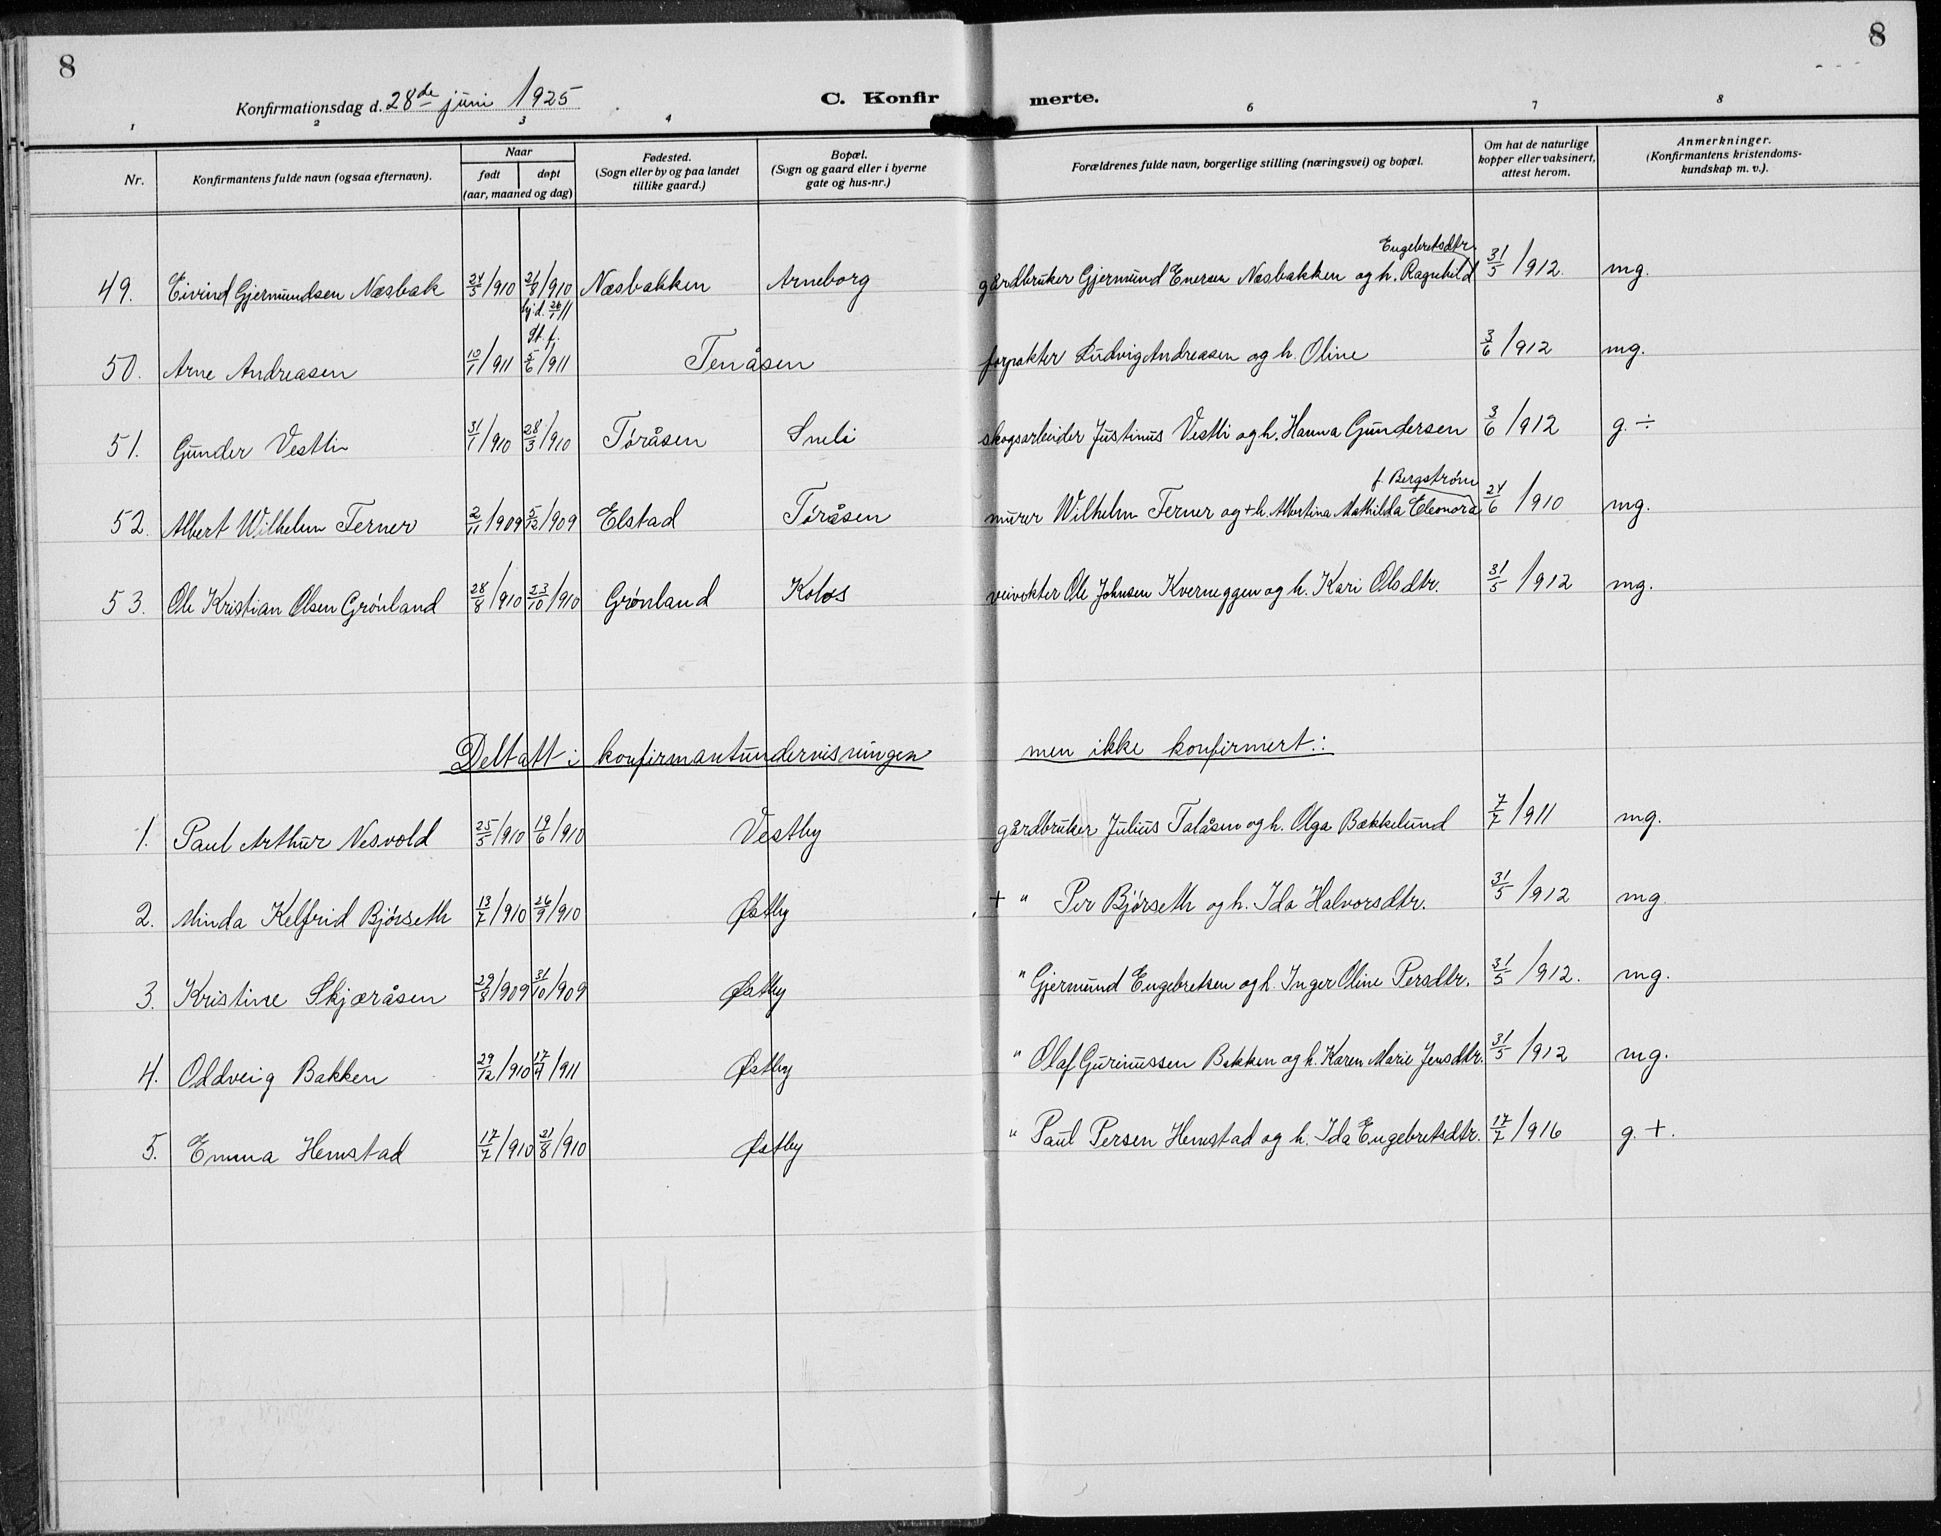 8
8
Konfirmationsdag d. 28de juni 1925
C. Konfirmerte.
1 2 3 4 6 7 8
Nr.
Konfirmantens fulde navn (ogsaa efternavn).
Naar
født døpt
(aar, maaned og dag)
Fødested.
(Sogn eller by og paa landet
tillike gaard.)
Bopæl.
(Sogn og gaard eller i byerne
gate og hus-nr.)
Forældrenes fulde navn, borgerlige stilling (næringsvei) og bopæl.
Om hat de naturlige
kopper eller vaksinert,
attest herom.
Anmerkninger.
(Konfirmantens kristendoms-
kundskap m. v.).
Engebretsdtr.
49. Eivind Gjermundsen Næsbak 24/5/910 /910 Næsbakken Arneborg gårdbruker Gjermund Enersen Næsbakken og h. Ragnhild 31/5/912. mg.
50. Arne Andreasen 10/1/911 5/6/911 Tenåsen forpakter Ludvig Andreasen og h. Oline 3/6/912 mg.
51. Gunder Vestli 31/1/910 28/3/910 Tøråsen Sneli skogsarbeider Justinus Vestli og h. Hanna Gundersen 3/6/912 g. ÷
f. Bergstrøm
52. Albert Wilhelm Ferner 2/11/909 5/12/909 Elstad Tøråsen murer Wilhelm Ferner og + h. Albertina Mathilda Eleonora 24/6/910 mg.
53. Ole Kristian Olsen Grønland 28/8/910 23/10/910 Grønland Kolos veivokter Ole Johnsen Kverneggen og h. Kari Olsdtr. 31/5/912 mg.
Deltatt i konfirmantundervisningen men ikke konfirmert:
1. Paul Arthur Nesvold 25/5/910 19/6/910 Vestby gårdbruker Julius Talåsen og h. Olga Bækkelund 7/7/911 mg.
2. Minda Kelfrid Bjørseth 13/7/910 26/9/910 Østby + " Per Bjørseth og h. Ida Halvorsdtr. 31/5/912 mg.
3. Kristine Skjæråsen 29/8/909 31/10/909 Østby " Gjermund Engebretsen og h. Inger Oline Persdtr. 31/5/912. mg.
4. Oldveig Bakken 29/12/910 17/4/911 Østby " Olaf Gurinussen Bakken og h. Karen Marie Jensdtr. 31/5/912 mg.
5. Emma Hemstad 17/7/910 21/8/910 Østby " Paul Persen Hemstad og h. Ida Engebretsdtr. 17/7/916 g. +.